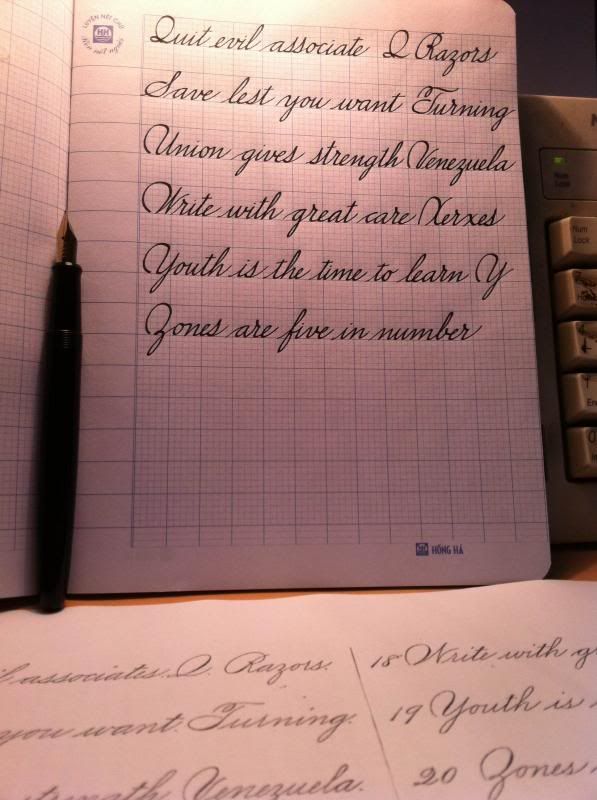 LUYỆN NÉT CHỮ
HH
Rèn nết người
Quit evil associate Q Razors
Save lest you want Turning
Union gives strength Venezuela
Write with great care Xerxes
Youth is the time to learn Y
Zones are five in number
HỒNG HÀ
Num
Lock
Num
Lock
l associates. Q. Razors.
you want. Turning.
strength Venezuela.
18 Write with g
19 Youth is
20 Zones